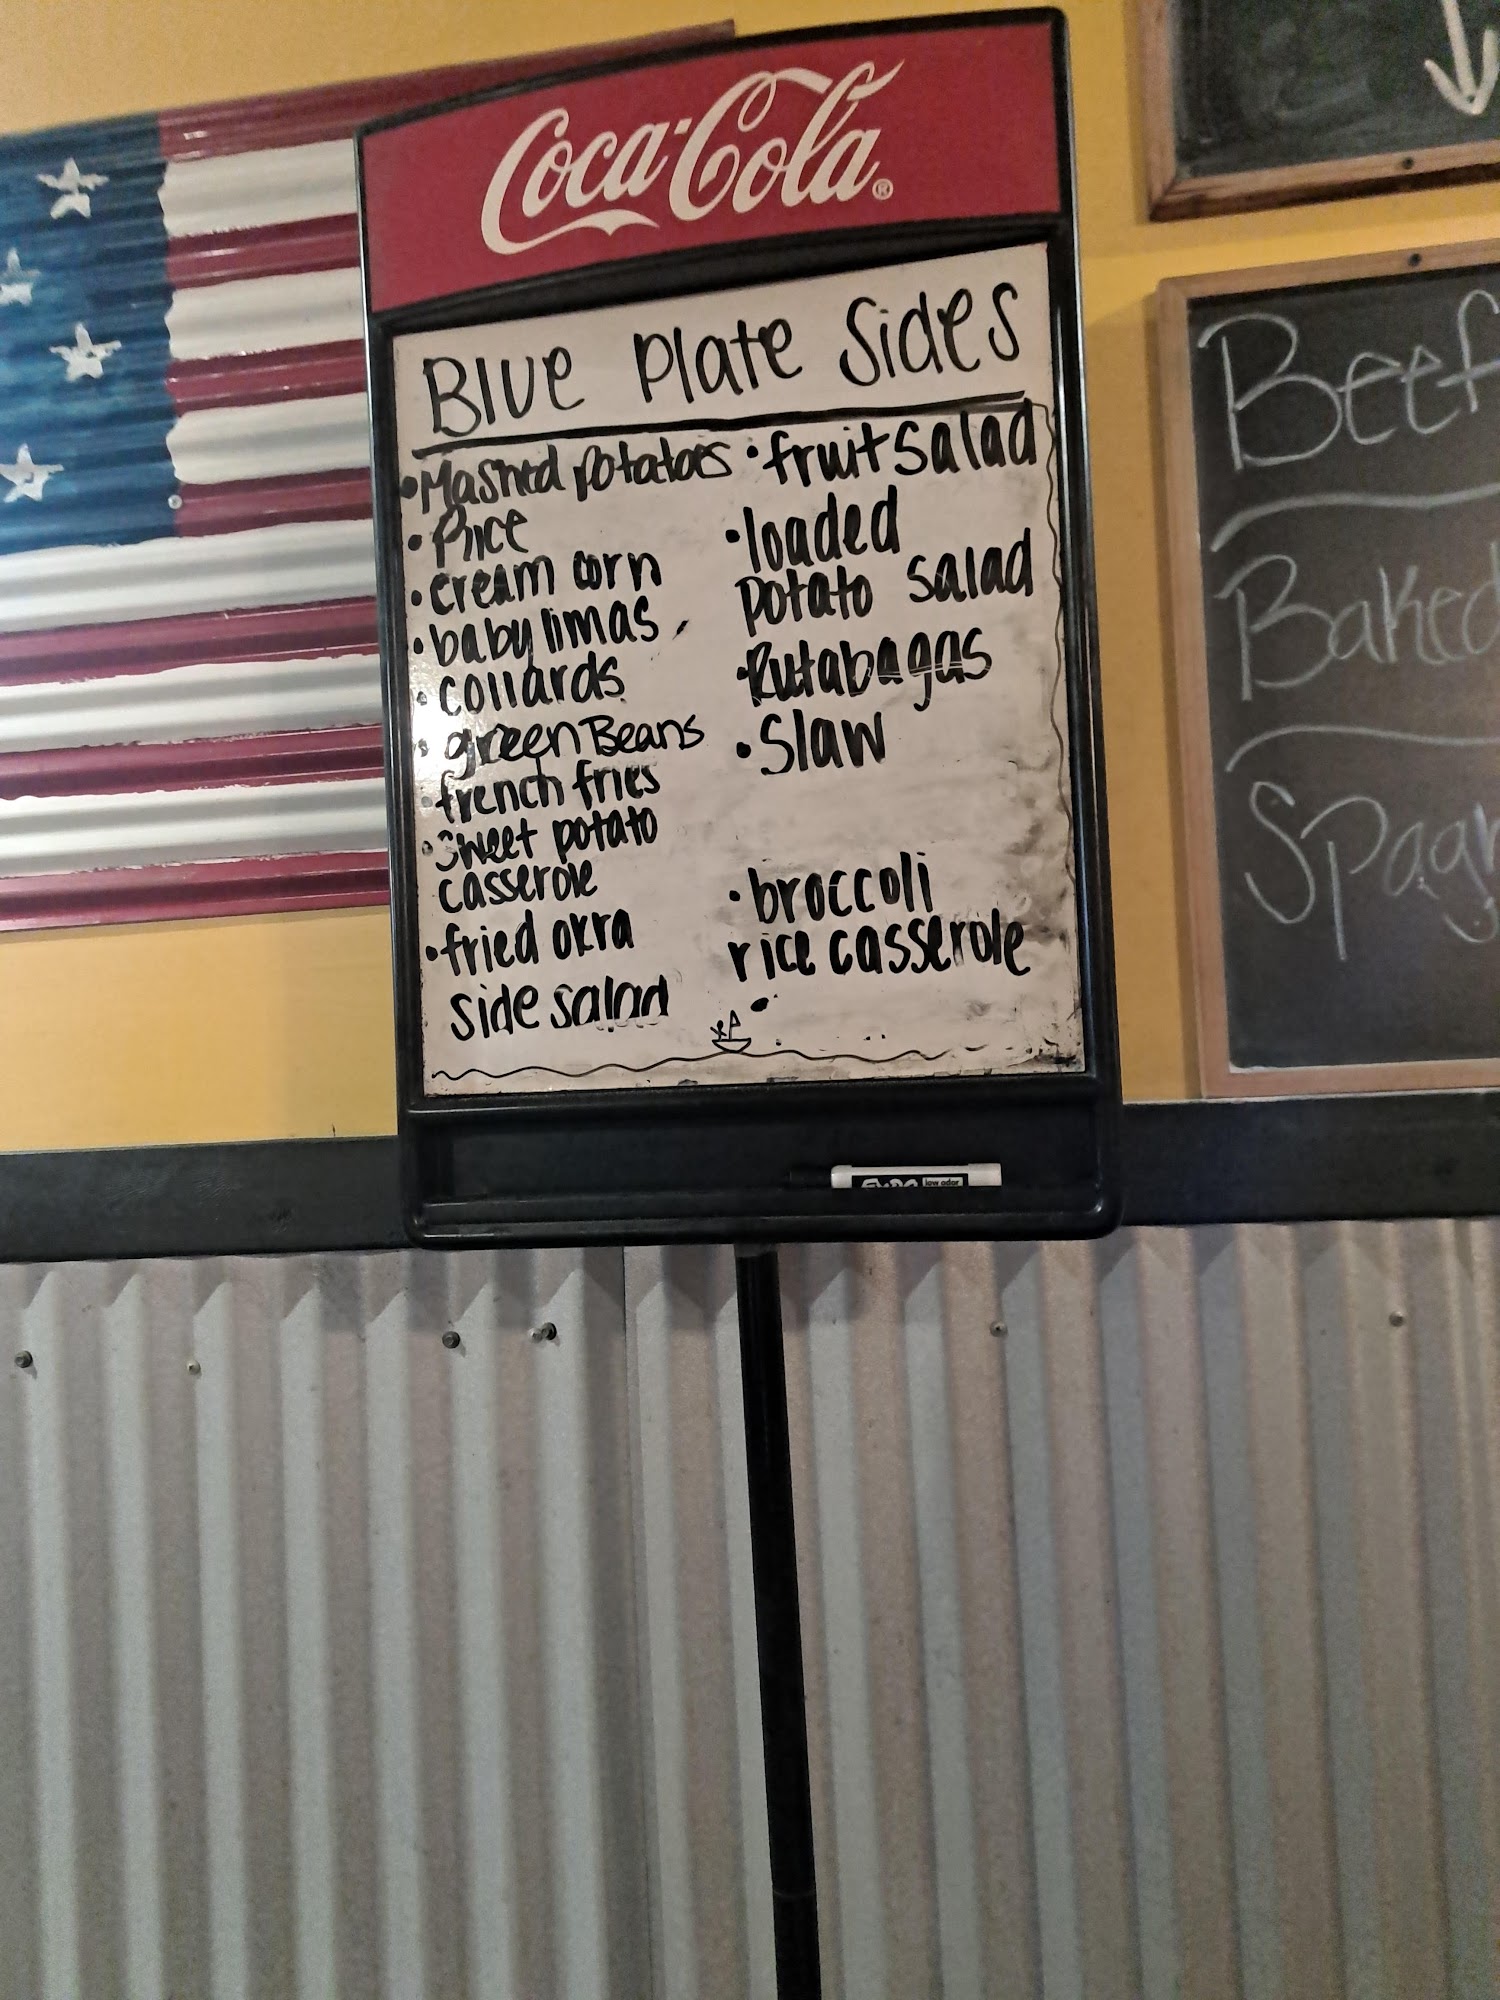 Coca-Cola®
Blue Plate Sides
• Mashed potatoes
• Rice
• cream corn
• baby limas
• collards
• green Beans
• french fries
• sweet potato
casserole
• fried okra
side salad
• fruit salad
• loaded
potato salad
• Rutabagas
• Slaw
• broccoli
rice casserole
•
EXPO low odor
Beef
Baked
Spagh